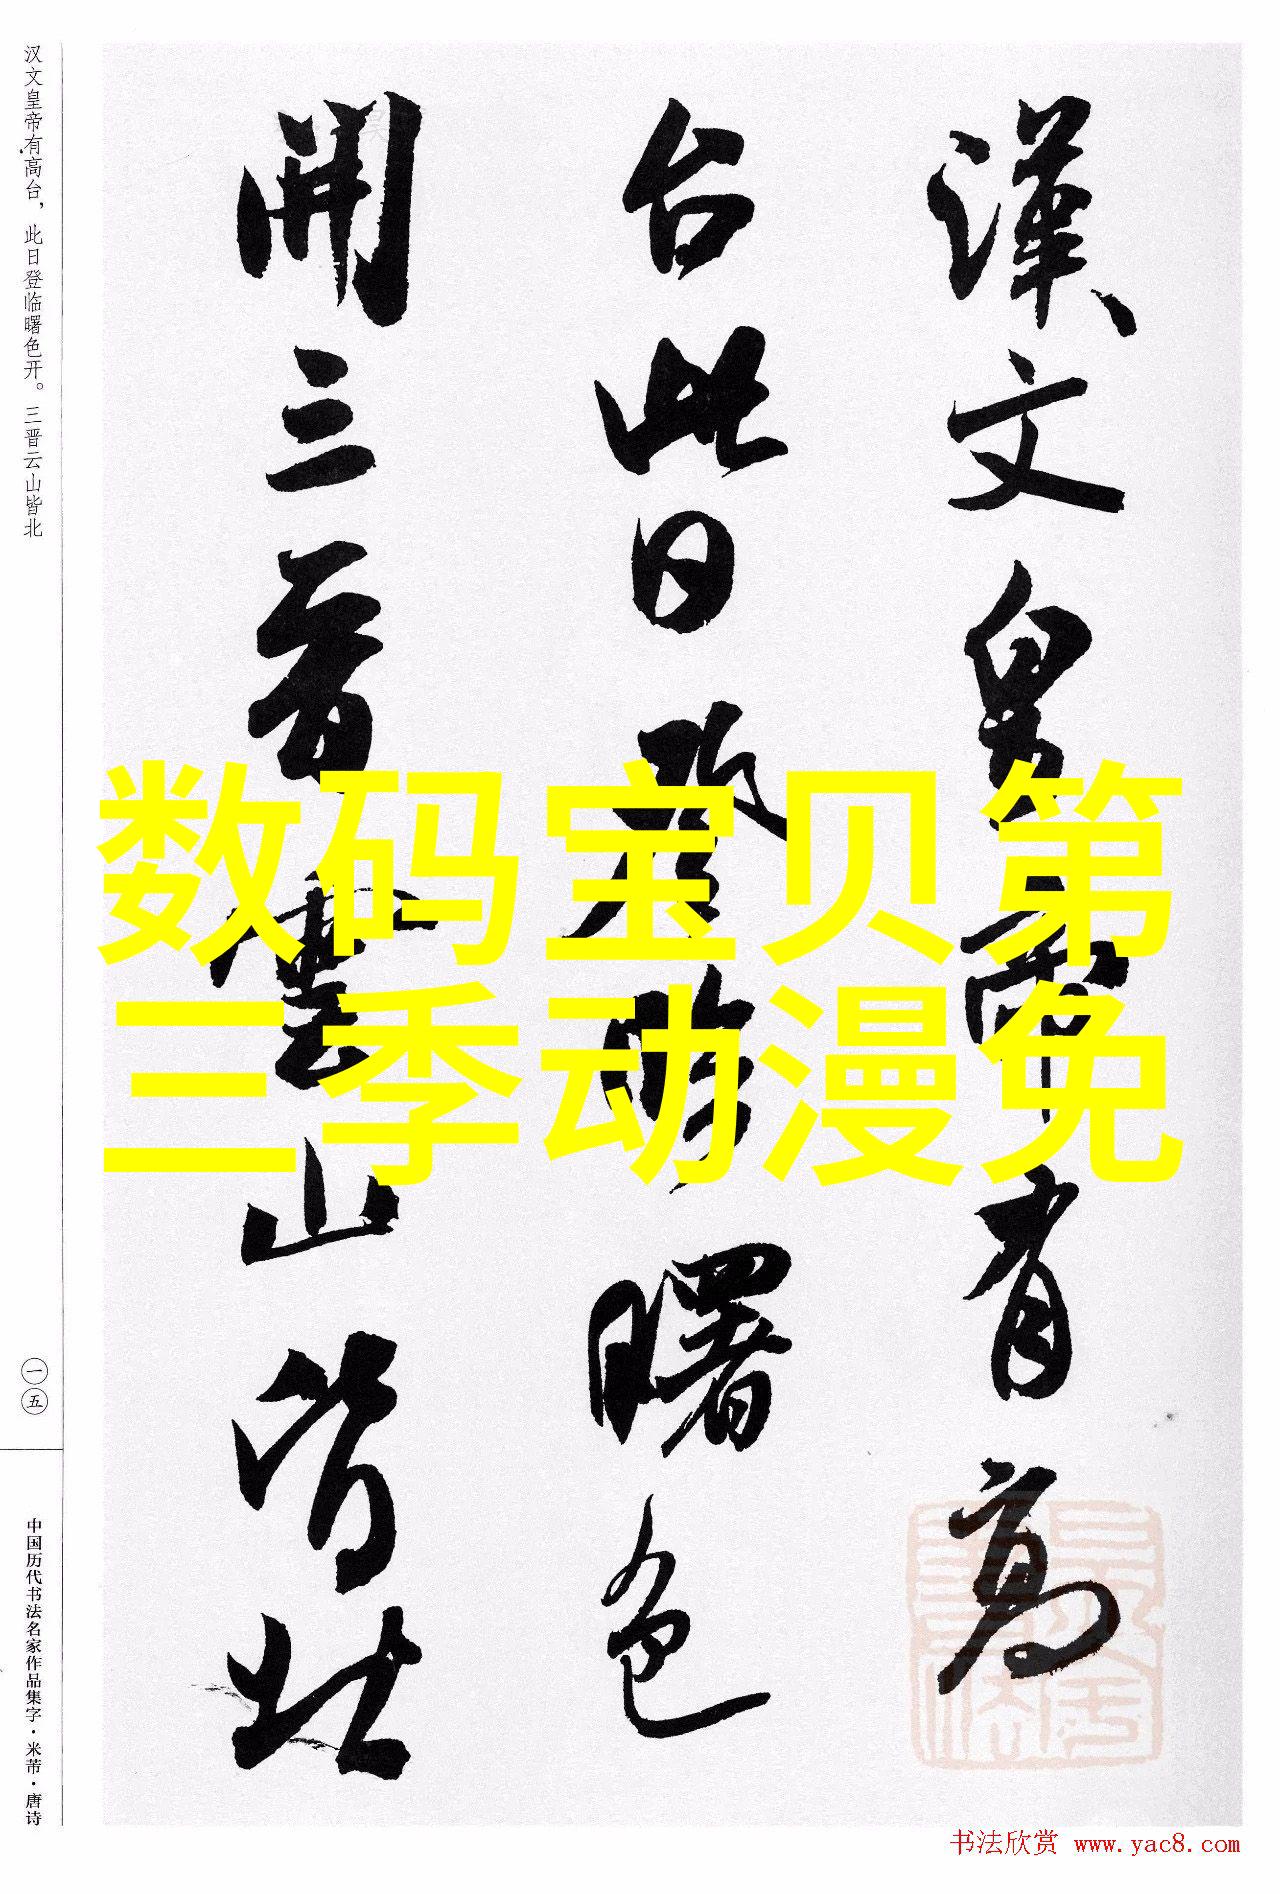 漢文皇帝有高
台此日登臨曙色
開三晉雲山皆北
数码宝贝第
三季动漫免
汉文皇帝有高台，此日登临曙色开。三晋云山皆北
一五
中国历代书法名家作品集字·米芾·唐诗
书法欣赏 www.yac8.com